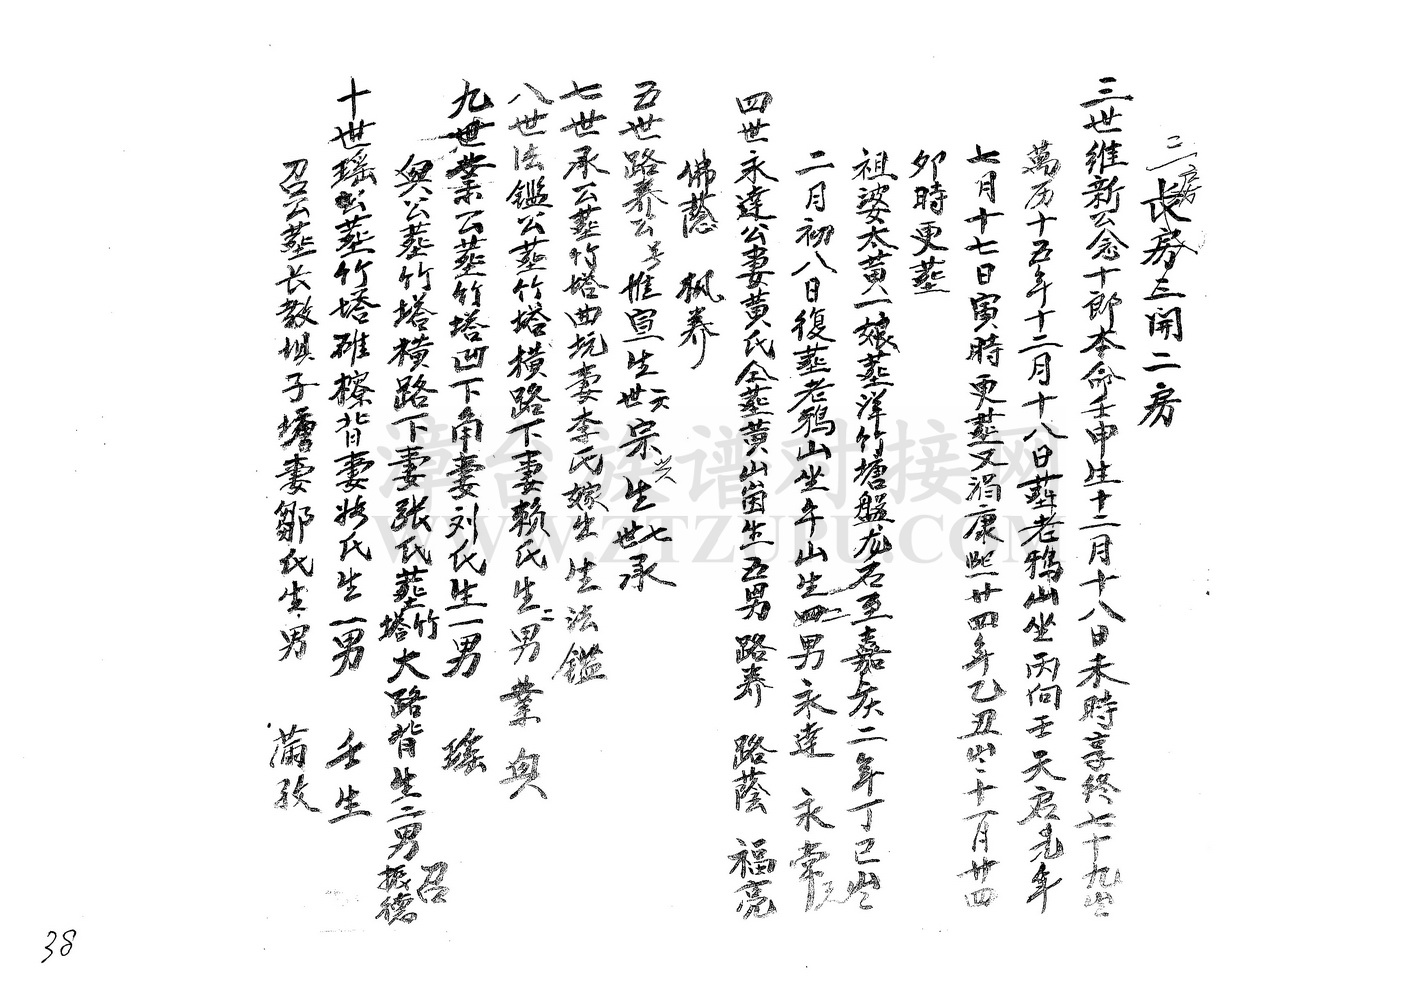 二房
長房三開二房
三世維新公念十郎本命壬申生十二月十八日未時享終七十九岁
萬历十五年十二月十八日塟老鴉山坐丙向壬天启元年
七月十七日寅時更塟又涓康熙廿四年乙丑岁十一月廿四
夘時更塟
祖婆太黄一娘塟洋竹塘盤龙石至嘉庆二年丁巳岁
二月初八日復塟老鴉山坐午山生四男永達 永常
四世永達公妻黄氏仝塟黄山崗生五男路养 路蔭 福亮
佛蔭 枫养
五世路养公号惟宣生六世宗兴生七世承
七世承公塟竹塔曲坑妻李氏嫁生 生法鑑
八世法鑑公塟竹塔横路下妻赖氏生二男業 與
九世業公塟竹塔凹下角妻刘氏生一男 瑶
與公塟竹塔横路下妻張氏塟竹塔大路背生二男振德 召
十世瑶公塟竹塔碓樑背妻 氏生一男 壬生
召公塟长教垻子墻妻鄒氏生男 蒲孜
漳台族谱对接网
WWW.ZTZUPU.COM
38